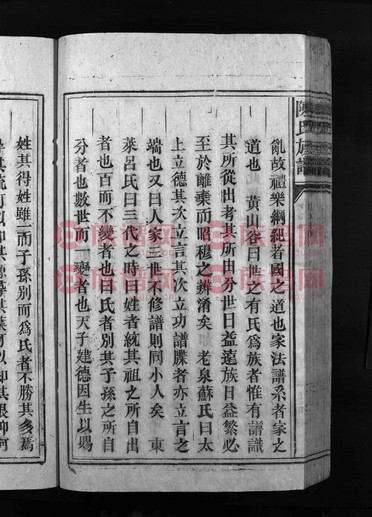 亂故禮樂綱紀者國之道也家法譜系者家之
道也 黃山谷曰世之有氏爲族者惟有譜識
其所從出考其所由分世日益遠族日益繁必
至於離棄而昭穆之辨淆矣 老泉蘇氏曰太
上立德其次立言其次立功譜牒者亦立言之
端也又曰人家三世不修譜則同小人矣 東
萊呂氏曰三代之時曰姓者統其祖之所自出
者也百而不變者也曰氏者別其子孫之所自
分者也數世而一變者也天子建德因生以賜
姓其得姓雖一而子孫別而爲氏者不勝其多焉
陳氏族譜
族譜网